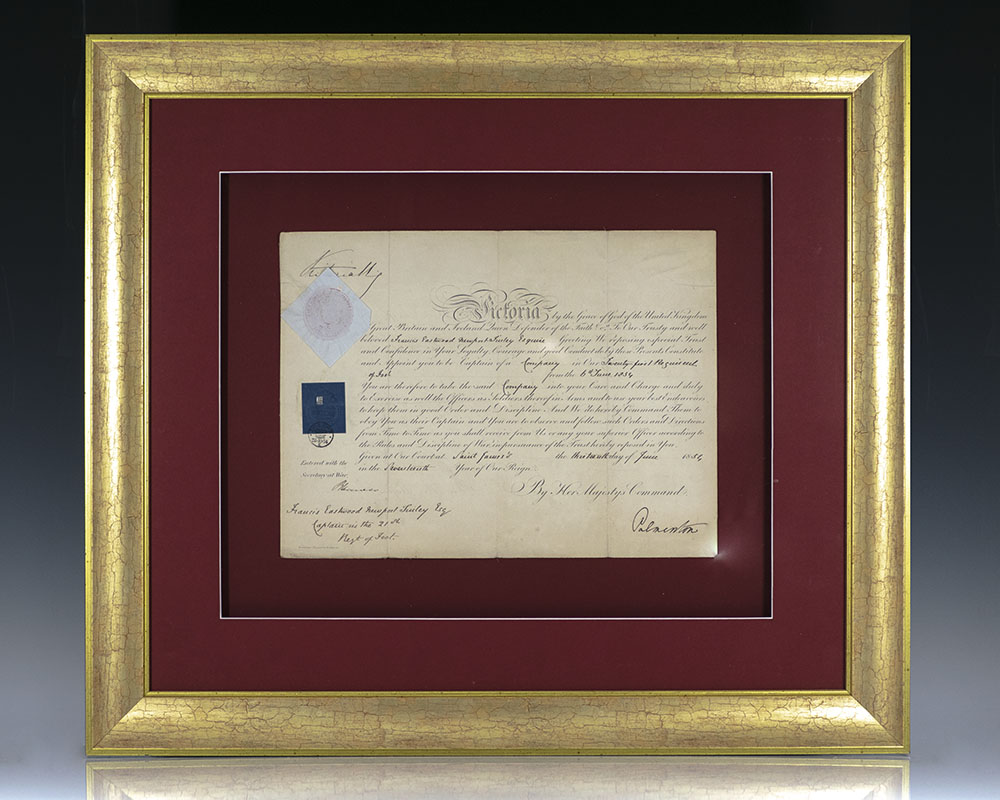 Victoria R
Victoria by the Grace of God of the United Kingdom
Great Britain and Ireland Queen Defender of the Faith &c. To Our Trusty and well
beloved Francis Eastwood Esquire Greeting We reposing especial Trust
and Confidence in Your Loyalty Courage and good Conduct do by these Presents Constitute
and Appoint you to be Captain of a Company in Our Twenty first Regiment
of Foot from the 6th June 1854
You are therefore to take the said Company into your Care and Charge and duly
to Exercise as well the Officers as Soldiers thereof in Arms and to use your best Endeavours
to keep them in good Order and Discipline. And We do hereby Command Them to
obey You as their Captain and You are to observe and follow such Orders and Directions
from Time to Time as you shall receive from Us or any your superior Officer according to
the Rules and Discipline of War, in pursuance of the Trust hereby reposed in You.
Given at Our Court at Saint James's the day of June 1854
in the Seventeenth Year of Our Reign
Entered with the
Secretary at War
By Her Majesty's Command
Francis Eastwood Esq
Captain in the 21st
Regt of Foot.
Palmerston